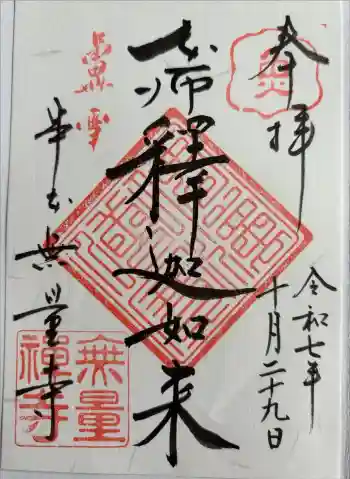 奉拝
令和七年
十月二十九日
釋迦如来
串本無量寺
無量
禅寺